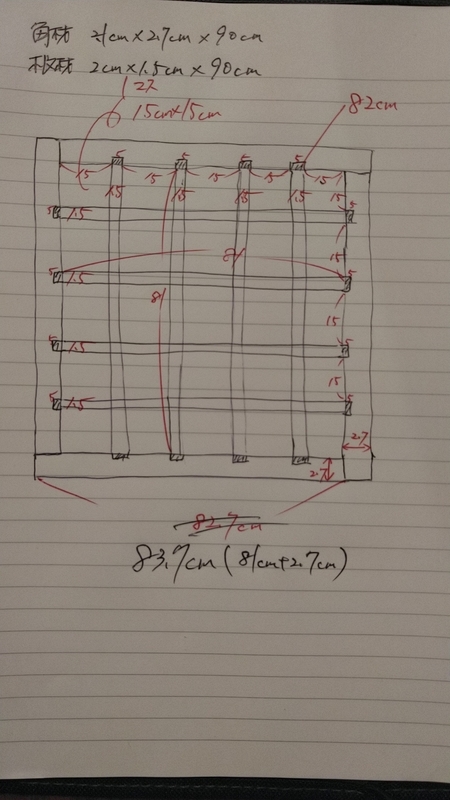 角材 2.1cm×2.7cm×90cm
板材 2cm×1.5cm×90cm
15cm×15cm
82cm
5 5 5 5
15 15 15 15 15
1.5 1.5 1.5 1.5
15
5 1.5 5
15
81
5 1.5 5
81
15
5 1.5 5
15
5 1.5 5
2.7
2.7
82.7cm
83.7cm(81cm+2.7cm)